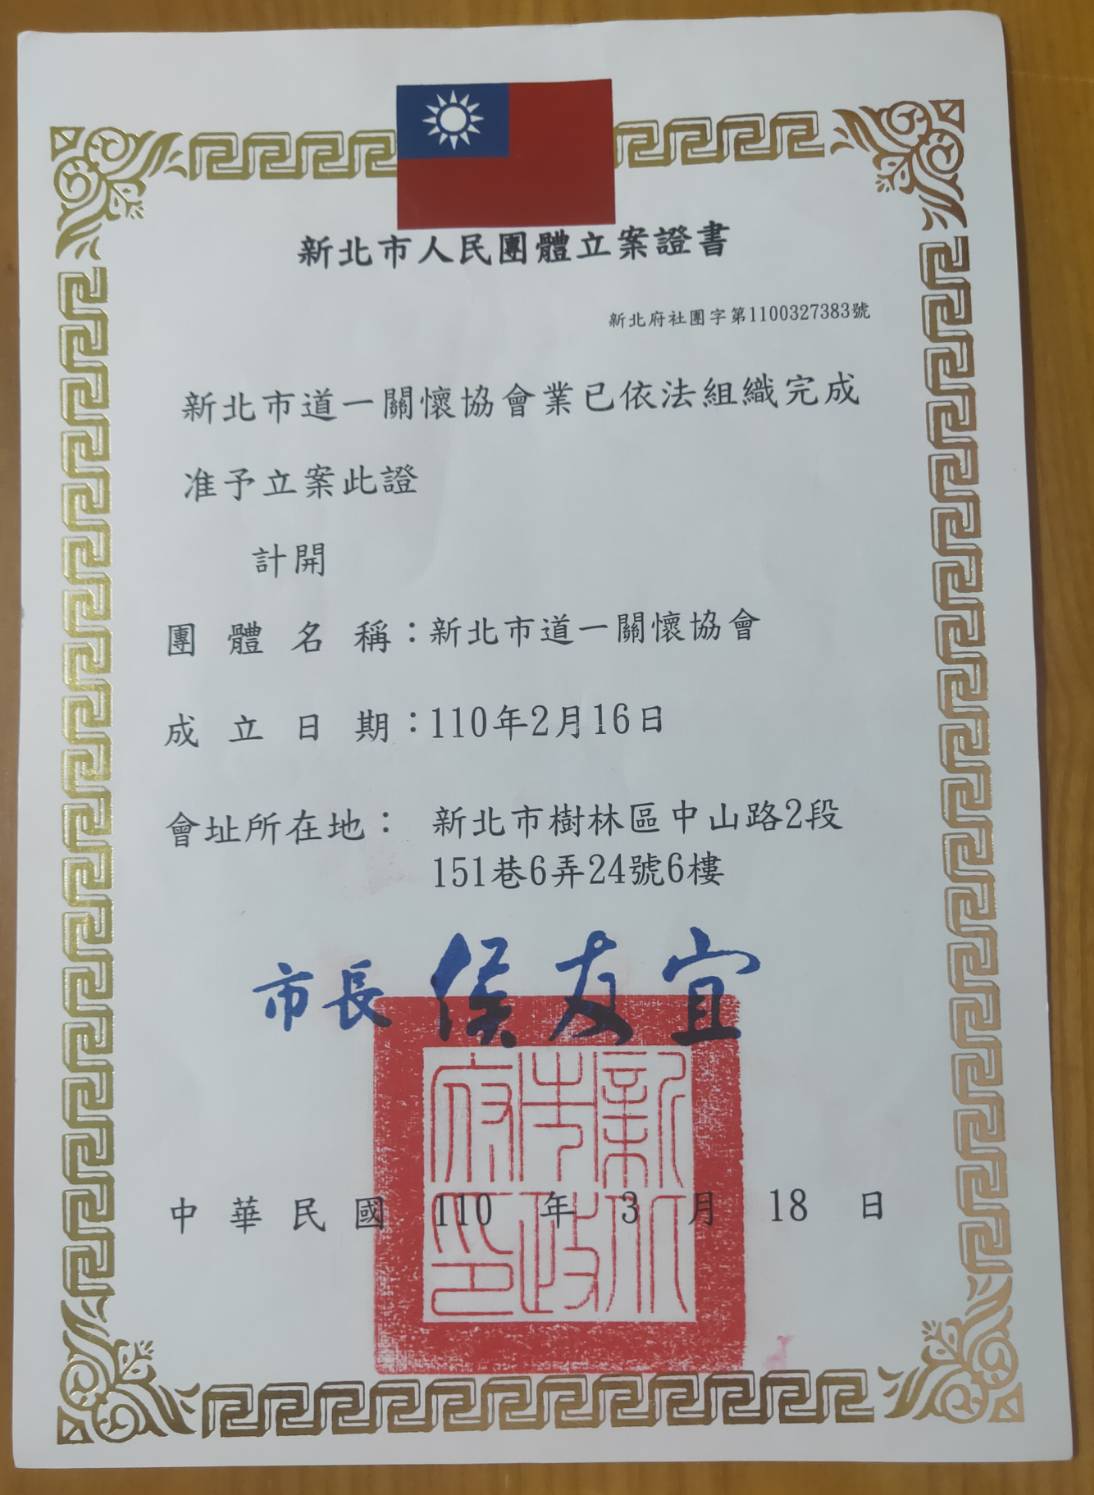 新北市人民團體立案證書
新北府社團字第1100327383號
新北市道一關懷協會業已依法組織完成
准予立案此證
計開
團體名稱：新北市道一關懷協會
成立日期：110年2月16日
會址所在地： 新北市樹林區中山路2段
151巷6弄24號6樓
市長 侯友宜
新北市政府印
中華民國 110 年 3 月 18 日